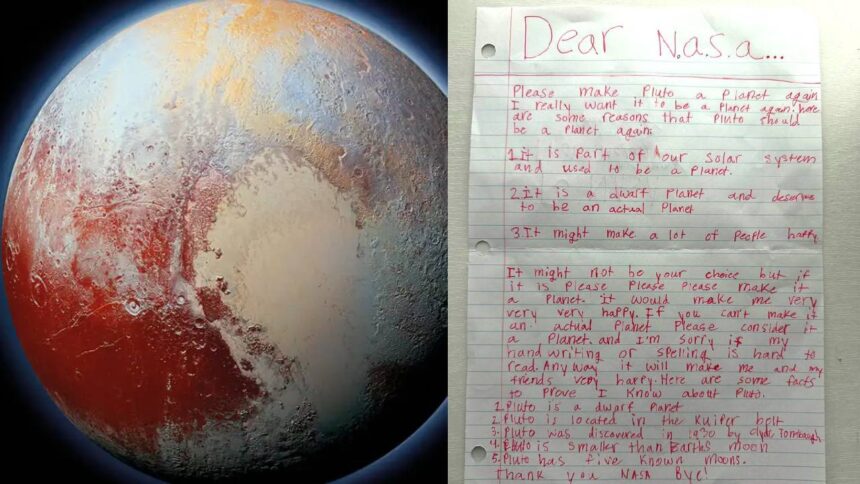 Dear N.a.s.a...
Please make Pluto a Planet again
I really want it to be a Planet again. here
are some reasons that Pluto should
be a Planet again.
1. it is Part of our Solar system
and used to be a Planet.
2. It is a dwarf Planet and deserve
to be an actual Planet
3. It might make a lot of People happy
It might not be your choice but if
it is Please Please Please make it
a Planet. it would make me very
very very happy. If you can't make it
an actual Planet Please consider it
a Planet. and I'm sorry if my
hand writing or spelling is hard to
read. Any way it will make me and my
friends very happy. Here are some facts
to prove I know about Pluto.
1. Pluto is a dwarf Planet
2. Pluto is located in the Kuiper belt
3. Pluto was discovered in 1930 by Clyde Tombaugh
4. Pluto is smaller than Earths moon
5. Pluto has five known moons.
Thank you NASA Bye!